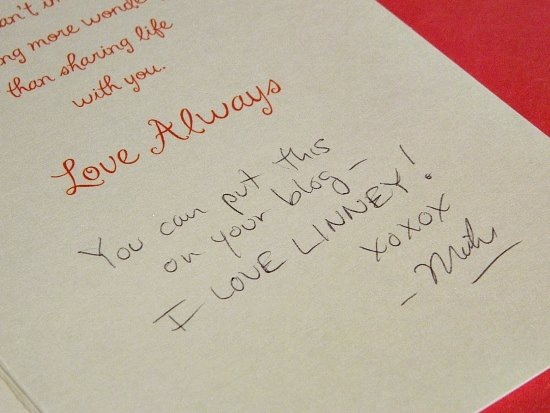 an't im
ng more wonde
than sharing life
with you.
Love Always
You can put this
on your blog-
I LOVE LINNEY!
XOXOX